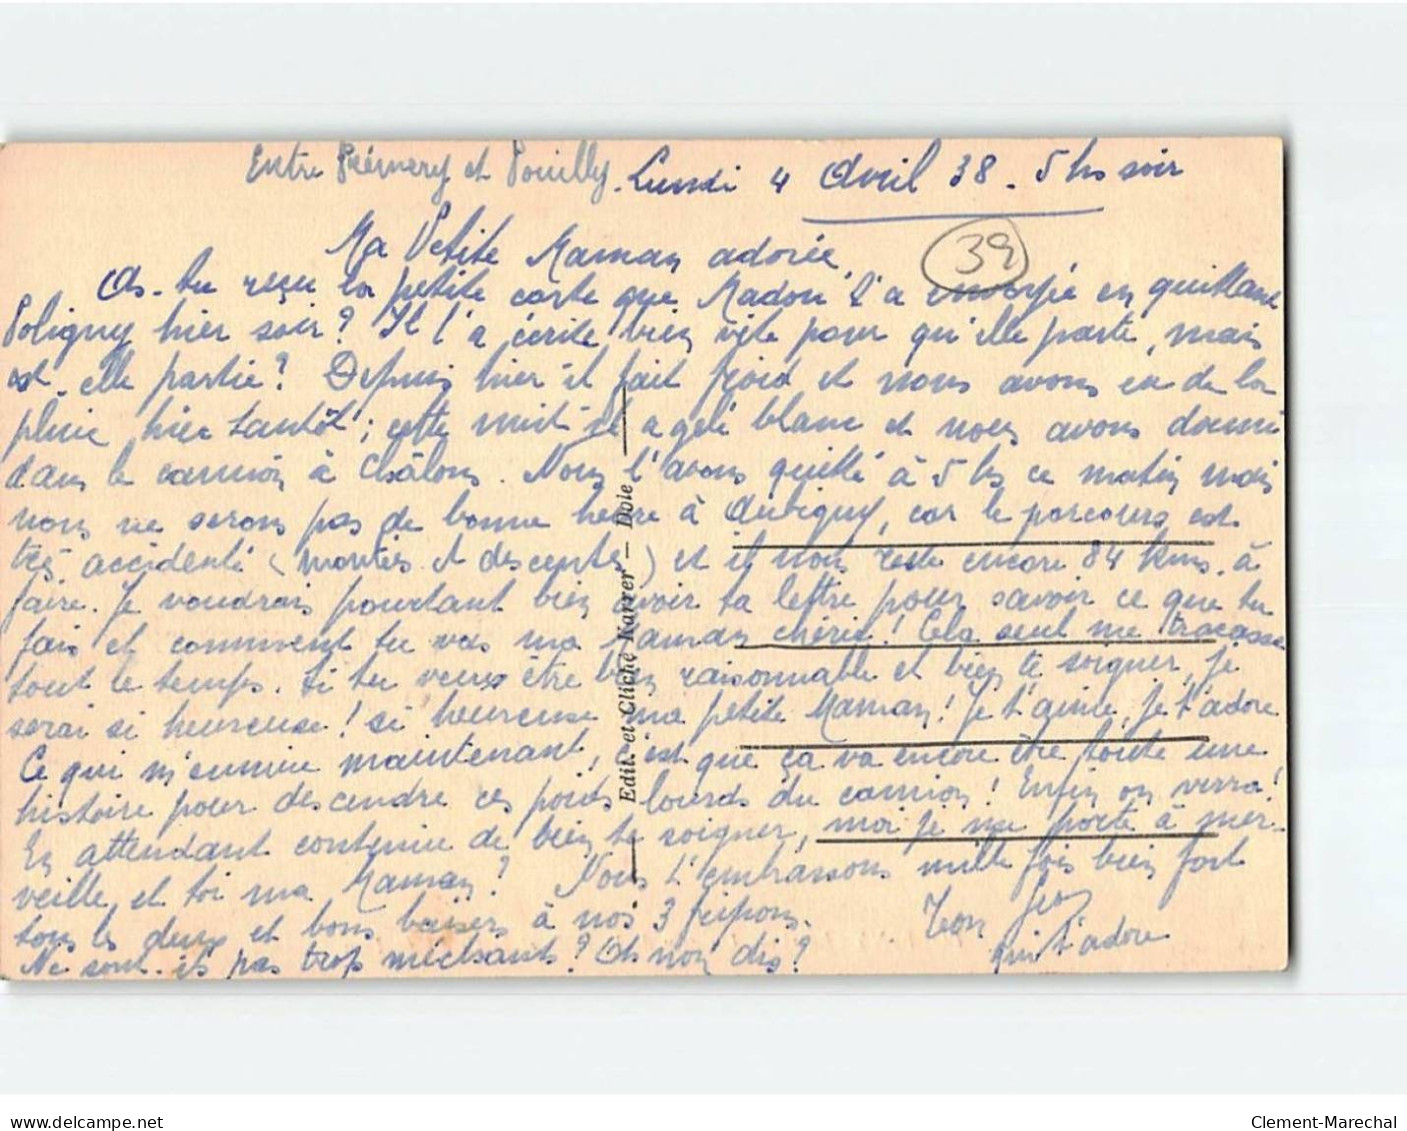 Entre Prémery et Pouilly. Lundi 4 Avril 38 - 5 hs soir
39
Ma Petite Maman adorée,
As-tu reçu la petite carte que Madou t'a envoyée en quittant
Poligny hier soir? Il l'a écrite bien vite pour qu'elle parte, mais
est-elle partie? Depuis hier il fait froid et nous avons eu de la
pluie hier tantôt; cette nuit il a gelé blanc et nous avons dormi
dans le camion à Châlons. Nous l'avons quitté à 5 hs ce matin mais
nous ne serons pas de bonne heure à Aubigny, car le parcours est
très accidenté (montées et descentes) et il nous reste encore 84 kms. à
faire. Je voudrais pourtant bien avoir ta lettre pour savoir ce que tu
fais et comment tu vas ma Maman chérie! Cela seul me tracasse
tout le temps. Si tu veux être bien raisonnable et bien te soigner, je
serai si heureuse! si heureuse ma petite Maman! Je t'aime, je t'adore
Ce qui m'ennuie maintenant, c'est que ça va encore être toute une
histoire pour descendre ces poids lourds du camion! Enfin on verra!
En attendant continue de bien te soigner, moi je me porte à mer-
veille, et toi ma Maman? Nous t'embrassons mille fois bien fort
tous les deux et bons baisers à nos 3 fripons.
Ne sont-ils pas trop méchants? Oh non dis?
Ton
qui t'adore
Edit. et Cliché Karrer — Dole
delcampe.net
Clement-Marechal